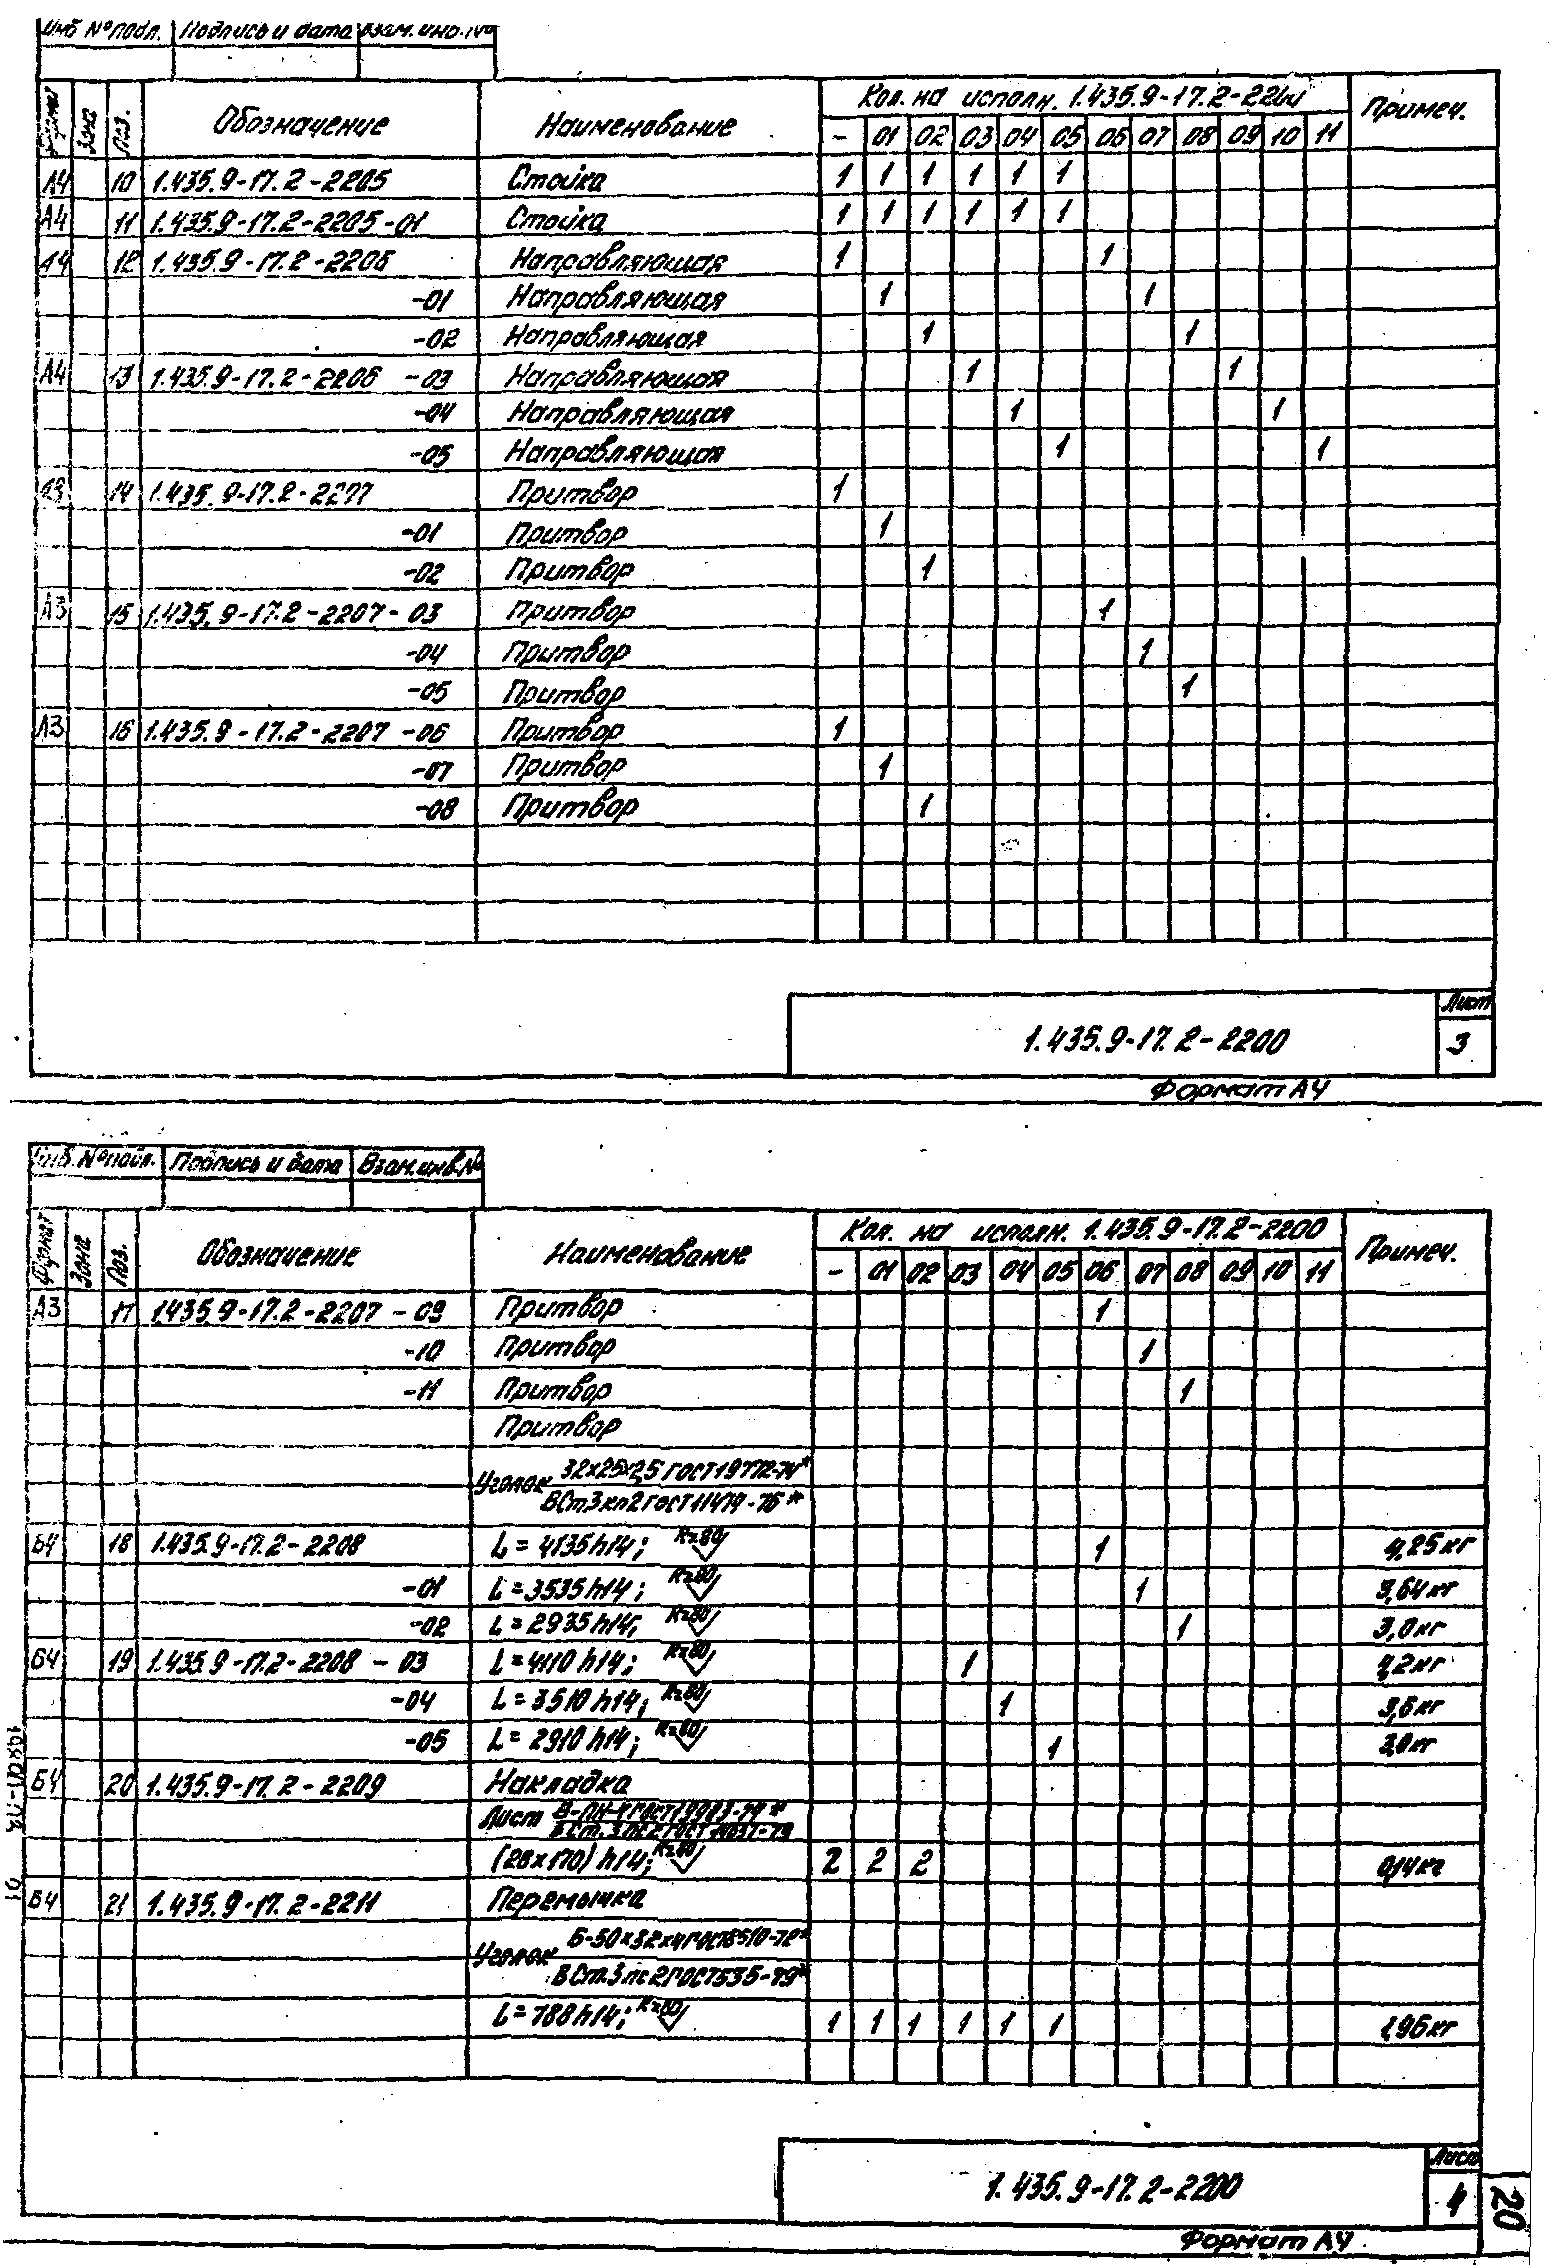 Инв. № подл. Подпись и дата Взам. инв. №
Формат Зона Поз. Обозначение Наименование Кол. на исполн. 1.435.9-17.2-2200 Примеч.
- 01 02 03 04 05 06 07 08 09 10 11
А4 10 1.435.9-17.2-2205 Стойка 1 1 1 1 1 1
А4 11 1.435.9-17.2-2205-01 Стойка 1 1 1 1 1 1
А4 12 1.435.9-17.2-2206 Направляющая 1 1
-01 Направляющая 1 1
-02 Направляющая 1 1
А4 13 1.435.9-17.2-2206 -03 Направляющая 1 1
-04 Направляющая 1 1
-05 Направляющая 1 1
А3 14 1.435.9-17.2-2207 Притвор 1
-01 Притвор 1
-02 Притвор 1
А3 15 1.435.9-17.2-2207-03 Притвор 1
-04 Притвор 1
-05 Притвор 1
А3 16 1.435.9-17.2-2207 -06 Притвор 1
-07 Притвор 1
-08 Притвор 1
1.435.9-17.2-2200
Лист
3
Формат А4
Инв. № подл. Подпись и дата Взам. инв. №
Формат Зона Поз. Обозначение Наименование Кол. на исполн. 1.435.9-17.2-2200 Примеч.
- 01 02 03 04 05 06 07 08 09 10 11
А3 17 1.435.9-17.2-2207 -09 Притвор 1
-10 Притвор 1
-11 Притвор 1
Притвор
Уголок 32х25х2,5 ГОСТ 19772-74*
ВСт3кп2 ГОСТ 11474-76*
Б4 18 1.435.9-17.2-2208 L=4135h14; Rz80 1 4,25кг
-01 L=3535h14; Rz80 1 3,64кг
-02 L=2935h14; Rz80 1 3,0кг
Б4 19 1.435.9-17.2-2208 -03 L=4110h14; Rz80 1 4,2кг
-04 L=3510h14; Rz80 1 3,6кг
-05 L=2910h14; Rz80 1 3,0кг
Б4 20 1.435.9-17.2-2209 Накладка
Лист Б-ПН-4 ГОСТ 19903-74*
ВСт.3пс2 ГОСТ 14637-79
(28х170)h14; Rz80 2 2 2 0,14кг
Б4 21 1.435.9-17.2-2211 Перемычка
Уголок Б-50х32х4 ГОСТ 8510-72*
ВСт.3пс2 ГОСТ 535-79*
L=788h14; Rz80 1 1 1 1 1 1 1,96кг
1.435.9-17.2-2200
Лист
4
20
Формат А4